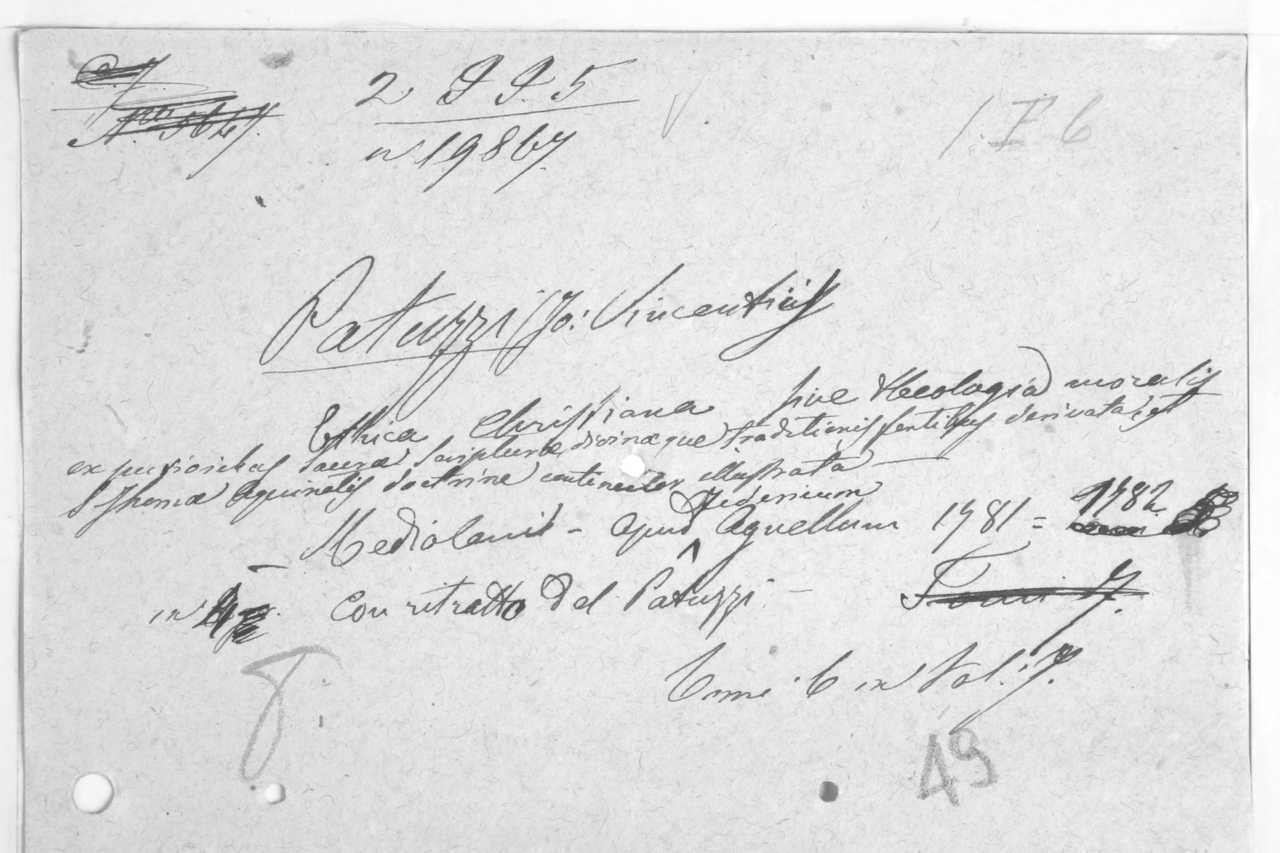 2 I I. 5
1. I 6
n. 19867
Patuzzi Jo: Vincentius
Ethica Christiana sive theologia moralis
ex purioribus sacræ Scripturæ divinæque traditionis fontibus derivata, et
S Thomæ Aquinatis doctrina continenter illustrata
Mediolani - apud Federicum Agnellum 1781 = 1782
in 4 con ritratto del Patuzzi -
Tomi 7.
Tomi 6 in Vol: 7.
49